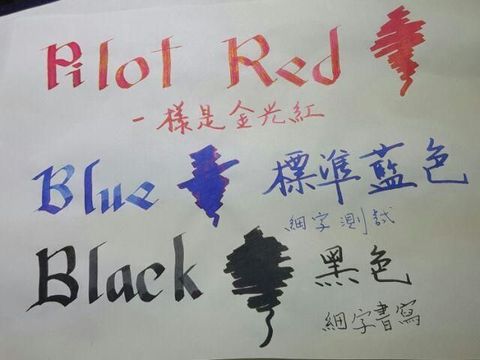 Pilot Red
一樣是金光紅
Blue 標準藍色
細字測試
Black 黑色
細字書寫